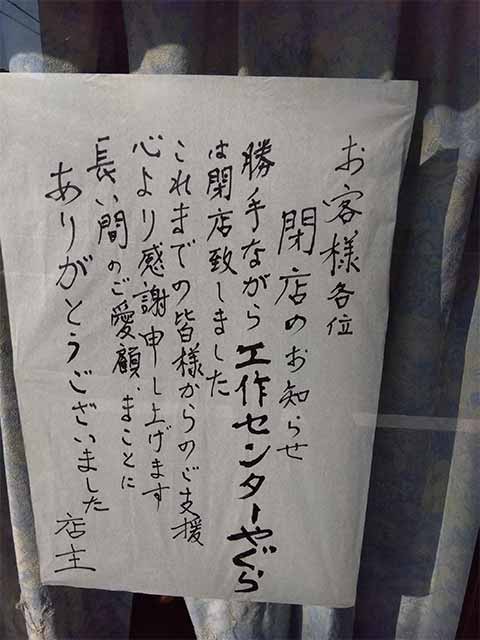 お客様各位
閉店のお知らせ
勝手ながら工作センターやぐら
は閉店致しました
これまでの皆様からのご支援
心より感謝申し上げます
長い間のご愛顧、まことに
ありがとうございました
店主